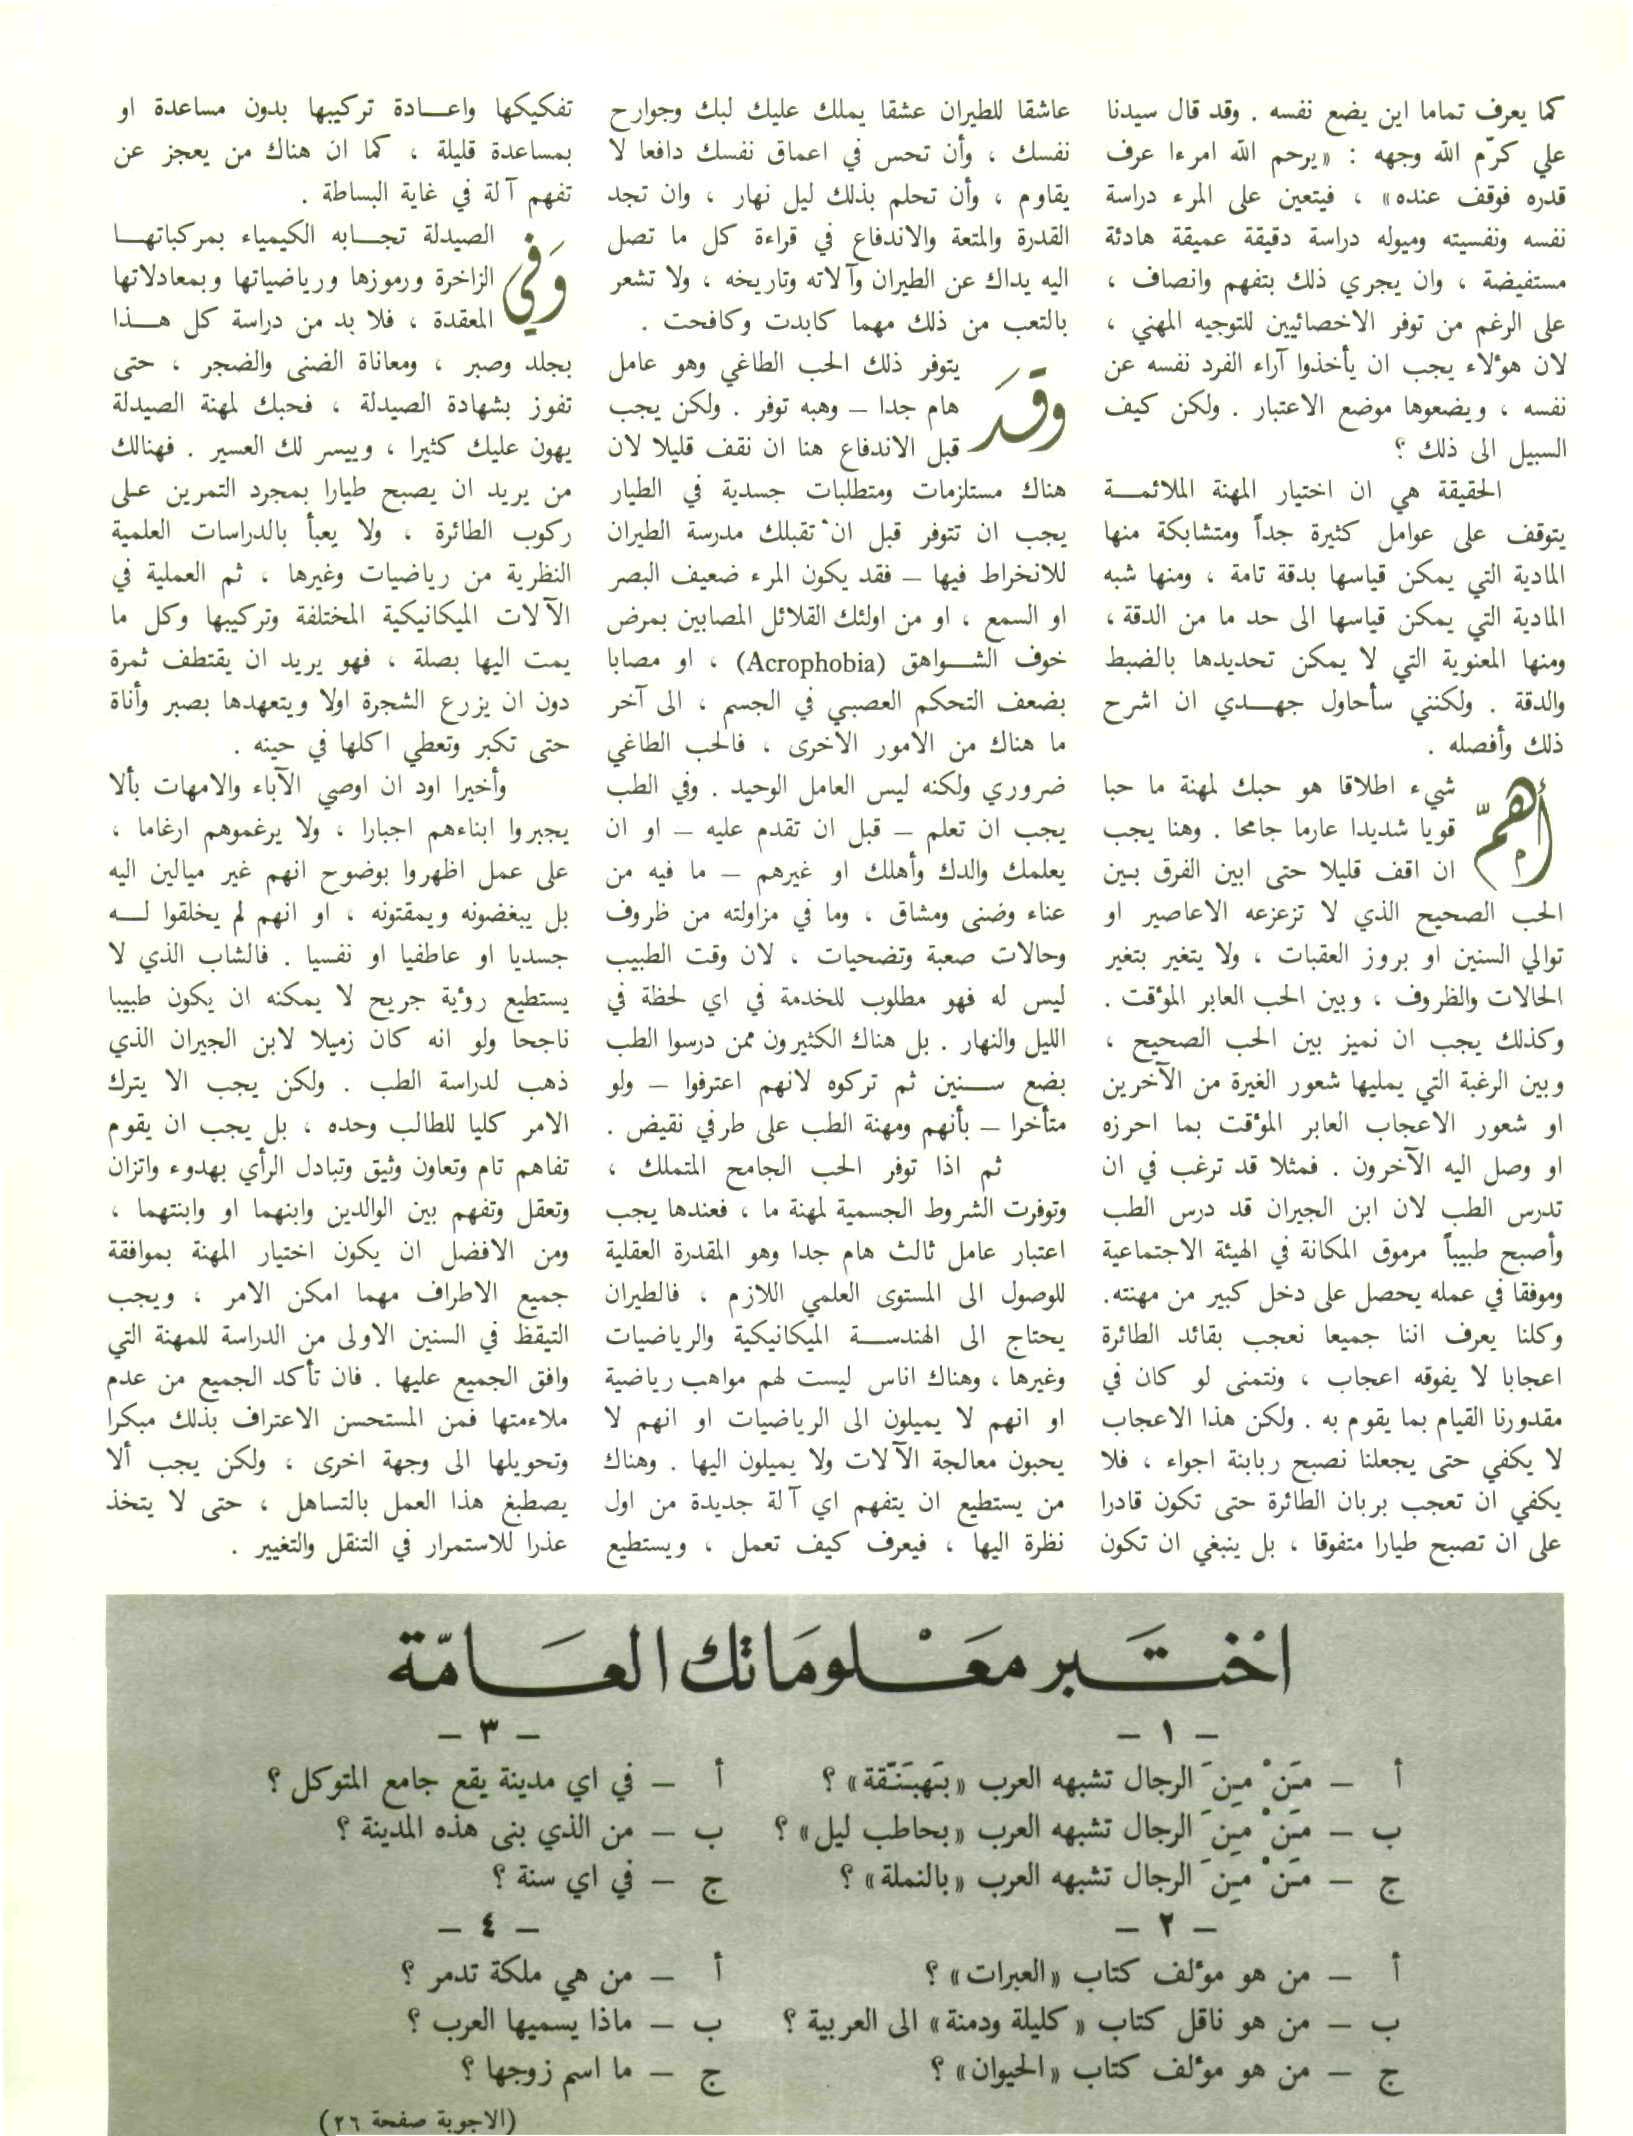 كما يعرف تماما اين يضع نفسه . وقد قال سيدنا
علي كرّم الله وجهه : «يرحم الله امرءا عرف
قدره فوقف عنده» ، فيتعين على المرء دراسة
نفسه ونفسيته وميوله دراسة دقيقة عميقة هادئة
مستفيضة ، وان يجري ذلك بتفهم وانصاف ،
على الرغم من توفر الاخصائيين للتوجيه المهني ،
لان هؤلاء يجب ان يأخذوا آراء الفرد نفسه عن
نفسه ، ويضعوها موضع الاعتبار . ولكن كيف
السبيل الى ذلك ؟
الحقيقة هي ان اختيار المهنة الملائمة
يتوقف على عوامل كثيرة جداً ومتشابكة منها
المادية التي يمكن قياسها بدقة تامة ، ومنها شبه
المادية التي يمكن قياسها الى حد ما من الدقة ،
ومنها المعنوية التي لا يمكن تحديدها بالضبط
والدقة . ولكنني سأحاول جهدي ان اشرح
ذلك وأفصله .
أهمّ شيء اطلاقا هو حبك لمهنة ما حبا
قويا شديدا عارما جامحا . وهنا يجب
ان اقف قليلا حتى ابين الفرق بين
الحب الصحيح الذي لا تزعزعه الاعاصير او
توالي السنين او بروز العقبات ، ولا يتغير بتغير
الحالات والظروف ، وبين الحب العابر المؤقت .
وكذلك يجب ان نميز بين الحب الصحيح ،
وبين الرغبة التي يمليها شعور الغيرة من الآخرين
او شعور الاعجاب العابر المؤقت بما احرزه
او وصل اليه الآخرون . فمثلا قد ترغب في ان
تدرس الطب لان ابن الجيران قد درس الطب
وأصبح طبيباً مرموق المكانة في الهيئة الاجتماعية
وموفقا في عمله يحصل على دخل كبير من مهنته.
وكلنا يعرف اننا جميعا نعجب بقائد الطائرة
اعجابا لا يفوقه اعجاب ، ونتمنى لو كان في
مقدورنا القيام بما يقوم به . ولكن هذا الاعجاب
لا يكفي حتى يجعلنا نصبح ربابنة اجواء ، فلا
يكفي ان تعجب بربان الطائرة حتى تكون قادرا
على ان تصبح طيارا متفوقا ، بل ينبغي ان تكون
عاشقا للطيران عشقا يملك عليك لبك وجوارح
نفسك ، وأن تحس في اعماق نفسك دافعا لا
يقاوم ، وأن تحلم بذلك ليل نهار ، وان تجد
القدرة والمتعة والاندفاع في قراءة كل ما تصل
اليه يداك عن الطيران وآلاته وتاريخه ، ولا تشعر
بالتعب من ذلك مهما كابدت وكافحت .
وقَد يتوفر ذلك الحب الطاغي وهو عامل
هام جدا – وهبه توفر . ولكن يجب
قبل الاندفاع هنا ان نقف قليلا لان
هناك مستلزمات ومتطلبات جسدية في الطيار
يجب ان تتوفر قبل ان تقبلك مدرسة الطيران
للانخراط فيها – فقد يكون المرء ضعيف البصر
او السمع ، او من اولئك القلائل المصابين بمرض
خوف الشواهق (Acrophobia) ، او مصابا
بضعف التحكم العصبي في الجسم ، الى آخر
ما هناك من الامور الاخرى ، فالحب الطاغي
ضروري ولكنه ليس العامل الوحيد . وفي الطب
يجب ان تعلم – قبل ان تقدم عليه – او ان
يعلمك والدك وأهلك او غيرهم – ما فيه من
عناء وضنى ومشاق ، وما في مزاولته من ظروف
وحالات صعبة وتضحيات ، لان وقت الطبيب
ليس له فهو مطلوب للخدمة في اي لحظة في
الليل والنهار . بل هناك الكثيرون ممن درسوا الطب
بضع سنين ثم تركوه لانهم اعترفوا – ولو
متأخرا – بأنهم ومهنة الطب على طرفي نقيض .
ثم اذا توفر الحب الجامح المتملك ،
وتوفرت الشروط الجسمية لمهنة ما ، فعندها يجب
اعتبار عامل ثالث هام جدا وهو المقدرة العقلية
للوصول الى المستوى العلمي اللازم ، فالطيران
يحتاج الى الهندسة الميكانيكية والرياضيات
وغيرها ، وهناك اناس ليست لهم مواهب رياضية
او انهم لا يميلون الى الرياضيات او انهم لا
يحبون معالجة الآلات ولا يميلون اليها . وهناك
من يستطيع ان يتفهم اي آلة جديدة من اول
نظرة اليها ، فيعرف كيف تعمل ، ويستطيع
تفكيكها واعادة تركيبها بدون مساعدة او
بمساعدة قليلة ، كما ان هناك من يعجز عن
تفهم آلة في غاية البساطة .
وَفي الصيدلة تجابه الكيمياء بمركباتها
الزاخرة ورموزها ورياضياتها وبمعادلاتها
المعقدة ، فلا بد من دراسة كل هذا
بجلد وصبر ، ومعاناة الضنى والضجر ، حتى
تفوز بشهادة الصيدلة ، فحبك لمهنة الصيدلة
يهون عليك كثيرا ، وييسر لك العسير . فهنالك
من يريد ان يصبح طيارا بمجرد التمرين على
ركوب الطائرة ، ولا يعبأ بالدراسات العلمية
النظرية من رياضيات وغيرها ، ثم العملية في
الآلات الميكانيكية المختلفة وتركيبها وكل ما
يمت اليها بصلة ، فهو يريد ان يقتطف ثمرة
دون ان يزرع الشجرة اولا ويتعهدها بصبر وأناة
حتى تكبر وتعطي اكلها في حينه .
وأخيرا اود ان اوصي الآباء والامهات بألا
يجبروا ابناءهم اجبارا ، ولا يرغموهم ارغاما ،
على عمل اظهروا بوضوح انهم غير ميالين اليه
بل يبغضونه ويمقتونه ، او انهم لم يخلقوا له
جسديا او عاطفيا او نفسيا . فالشاب الذي لا
يستطيع رؤية جريح لا يمكنه ان يكون طبيبا
ناجحا ولو انه كان زميلا لابن الجيران الذي
ذهب لدراسة الطب . ولكن يجب الا يترك
الامر كليا للطالب وحده ، بل يجب ان يقوم
تفاهم تام وتعاون وثيق وتبادل الرأي بهدوء واتزان
وتعقل وتفهم بين الوالدين وابنهما او وابنتهما ،
ومن الافضل ان يكون اختيار المهنة بموافقة
جميع الاطراف مهما امكن الامر ، ويجب
التيقظ في السنين الاولى من الدراسة للمهنة التي
وافق الجميع عليها . فان تأكد الجميع من عدم
ملاءمتها فمن المستحسن الاعتراف بذلك مبكرا
وتحويلها الى وجهة اخرى ، ولكن يجب ألا
يصطبغ هذا العمل بالتساهل ، حتى لا يتخذ
عذرا للاستمرار في التنقل والتغيير .
اخْتَبر مَعْلومَاتك العَامّة
– ١ –
أ – مَنْ مِنَ الرجال تشبهه العرب «بهَبَنّقة» ؟
ب – مَنْ مِنَ الرجال تشبهه العرب «بحاطب ليل» ؟
ج – مَنْ مِنَ الرجال تشبهه العرب «بالنملة» ؟
– ٢ –
أ – من هو مؤلف كتاب «العبرات» ؟
ب – من هو ناقل كتاب «كليلة ودمنة» الى العربية ؟
ج – من هو مؤلف كتاب «الحيوان» ؟
– ٣ –
أ – في اي مدينة يقع جامع المتوكل ؟
ب – من الذي بنى هذه المدينة ؟
ج – في اي سنة ؟
– ٤ –
أ – من هي ملكة تدمر ؟
ب – ماذا يسميها العرب ؟
ج – ما اسم زوجها ؟
(الاجوبة صفحة ٢٦)